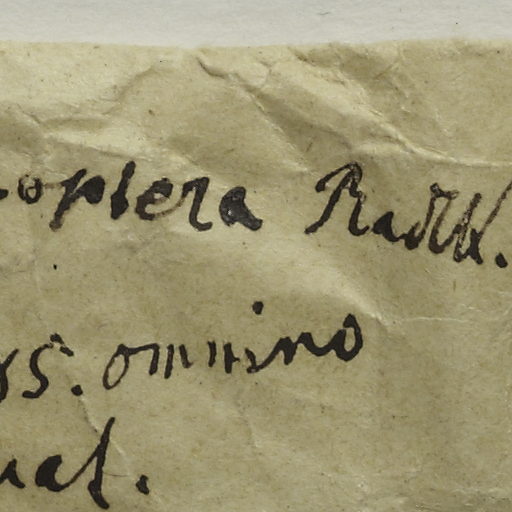 optera Radlk.
s. omnino
al.